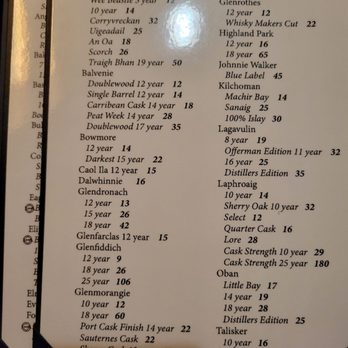 Wee Beastie 5 year 12
10 year 14
Corryvreckan 32
Uigeadail 25
An Oa 18
Scorch 26
Traigh Bhan 19 year 50
Balvenie
Doublewood 12 year 12
Single Barrel 12 year 14
Carribean Cask 14 year 18
Peat Week 14 year 28
Doublewood 17 year 35
Bowmore
12 year 14
Darkest 15 year 22
Caol Ila 12 year 15
Dalwhinnie 16
Glendronach
12 year 13
15 year 26
18 year 42
Glenfarclas 12 year 15
Glenfiddich
12 year 9
18 year 26
25 year 106
Glenmorangie
10 year 12
18 year 60
Port Cask Finish 14 year 22
Sauternes Cask 22
Glenrothes
12 year 12
Whisky Makers Cut 22
Highland Park
12 year 16
18 year 65
Johnnie Walker
Blue Label 45
Kilchoman
Machir Bay 14
Sanaig 25
100% Islay 30
Lagavulin
8 year 19
Offerman Edition 11 year 32
16 year 25
Distillers Edition 35
Laphroaig
10 year 14
Sherry Oak 10 year 32
Select 12
Quarter Cask 16
Lore 28
Cask Strength 10 year 29
Cask Strength 25 year 180
Oban
Little Bay 17
14 year 19
18 year 28
Distillers Edition 25
Talisker
10 year 16